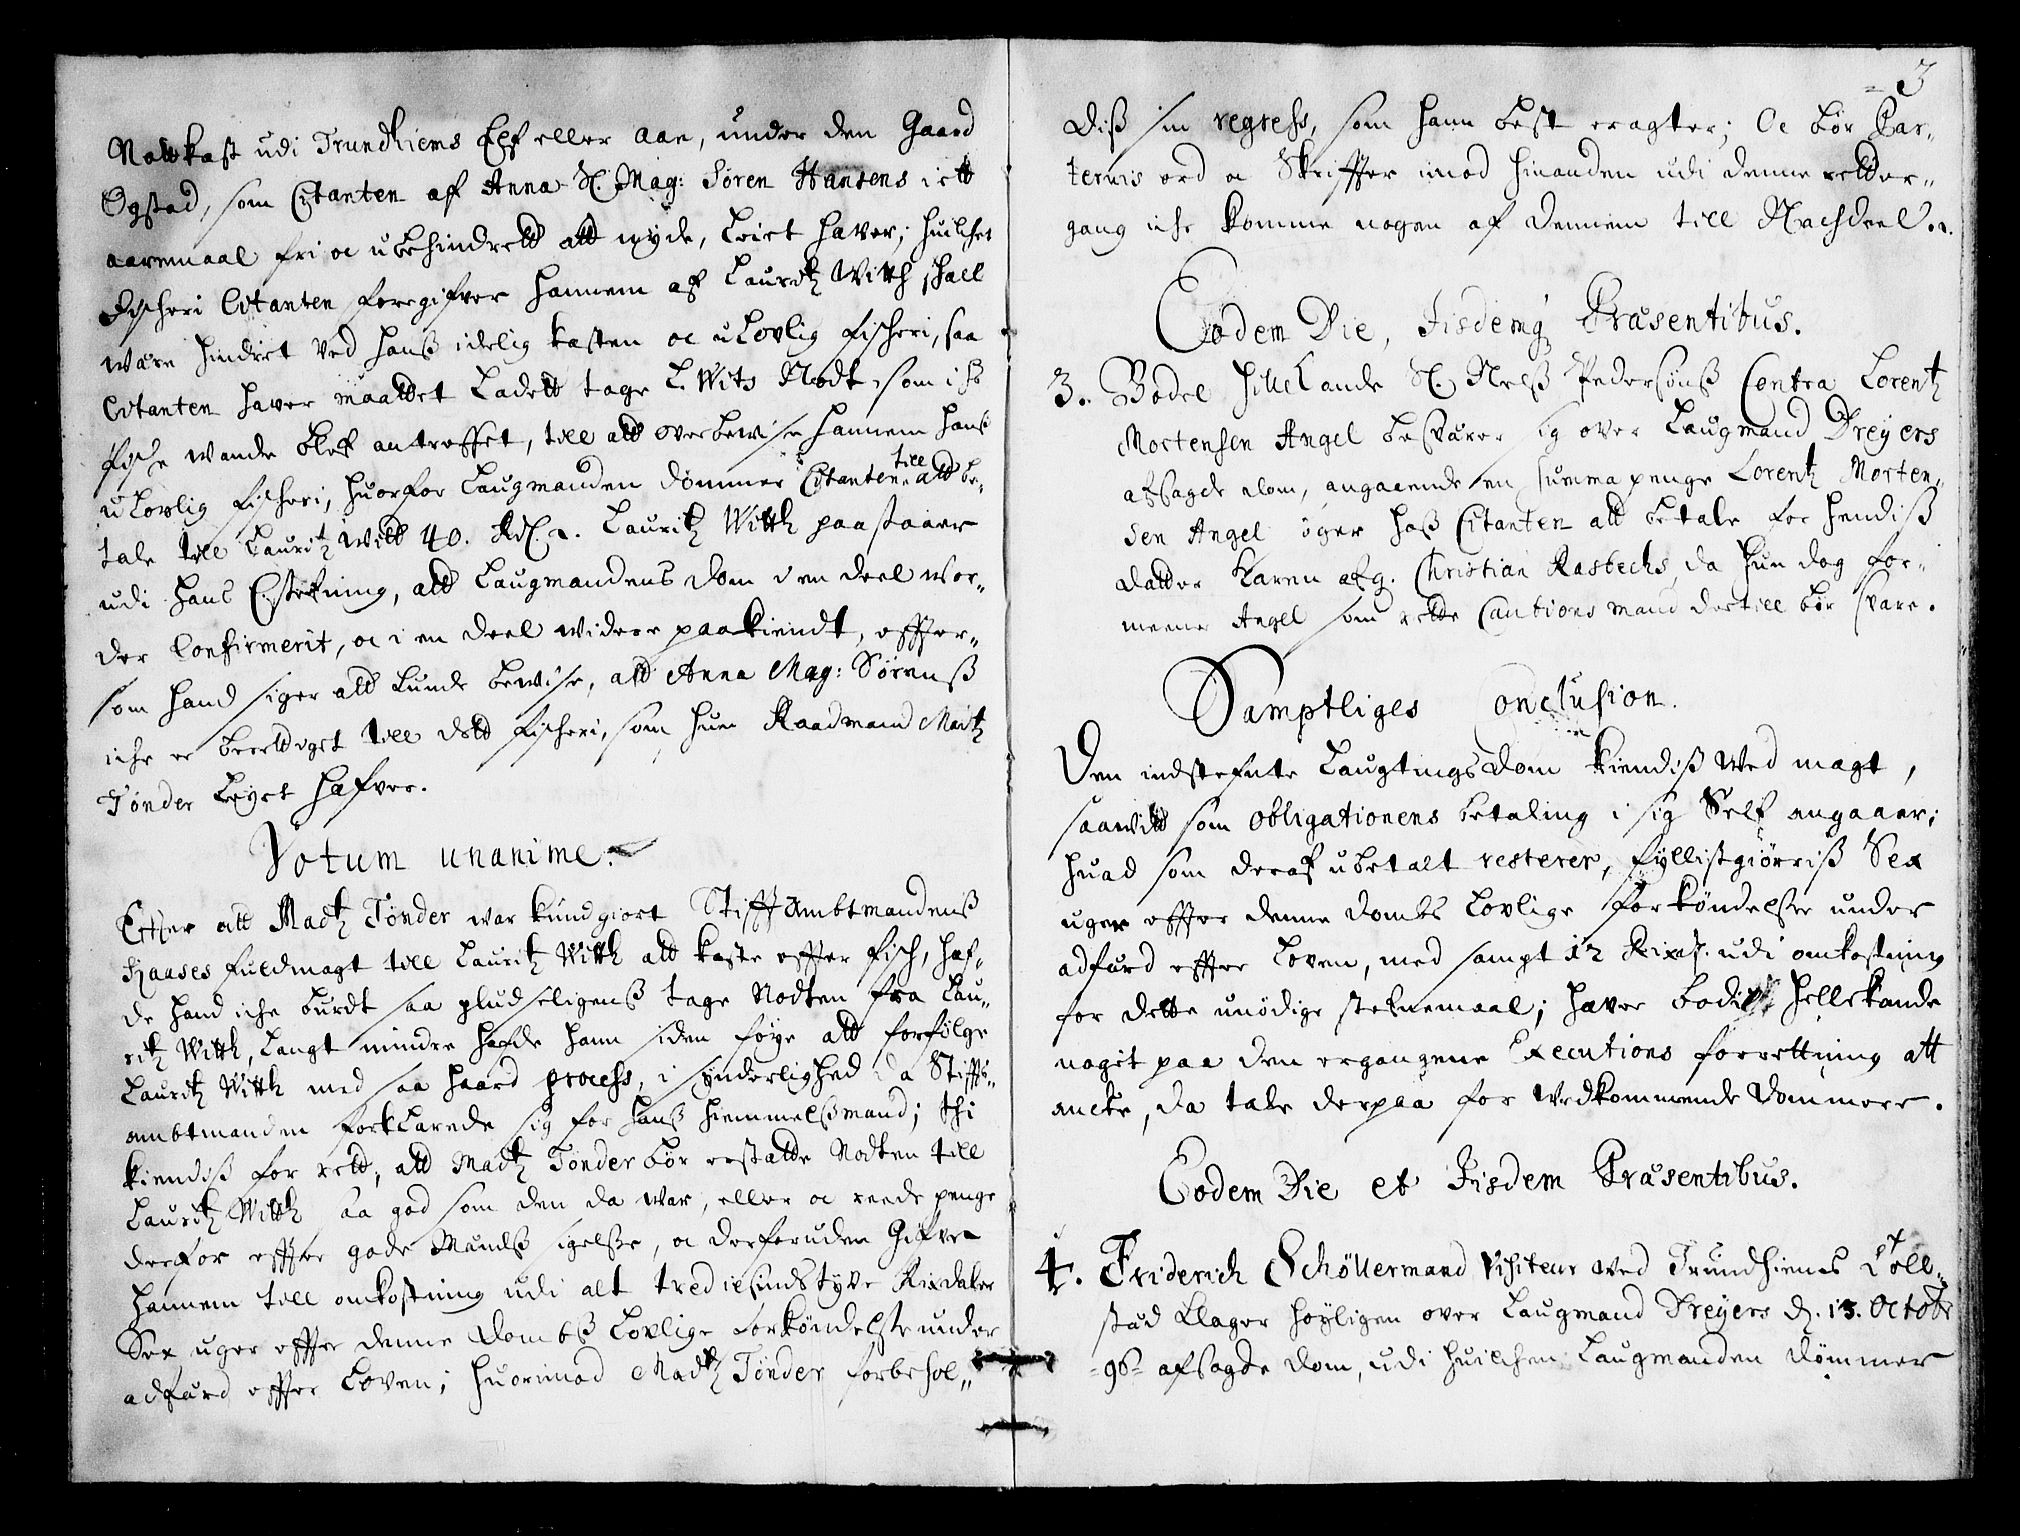 Nottkast udi Trundhiems Elf eller Aae, under den Gaard
Ogstad, som Citanten af Anna Sl. Mag: Sören Hansens i ett
aaremaal fri oc ubehindrett att nyde, Leiet haver; huilchet
Fischeri Citanten foregifver hannem af Lauritz Witth skall
være hindret ved hanß idelig kasten oc uLovlig Fischeri, saa
Citanten haver maattet Ladett tage L. Wits Nodt, som i hß
fische wande blef antroffet, till att overbewise hannem hanß
uLovlig fischeri, huorfor Laugmanden dömmer Citanten till att be-
tale till Lauritz Witt 40. Rdl. Lauritz Witth paastaaer
udi hans Erstefning, att Laugmandens dom i en deel wor-
der Confirmerit, oc i en deel widere paakiendt, effter-
som hand siger att kunde bewise, att Anna Mag: Sörenß
iche er berettiget till dett fischeri, som hun Raadmand Matz
Tönder Leyet hafver.
Votum unanime.
Effter att Madtz Tönder war kundgiort Stifft Ambtmandenß
Kaases fuldmagt till Lauritz Witth att kaste effter fisch, haf-
de hand iche burdt saa pludseligenß tage Nodten fra Lau-
ritz Witth, Langt mindre hafde hann siden föye att forfölge
Lauritz Witth med saa haard process, i synderlighed da Stiffts-
ambtmanden forklarede sig for hanß hiemmelßmand; thi
kiendiß for rett, att Madtz Tönder bör erstatte Nodten till
Lauritz Witth saa god som den da war, eller oc reede penge
derfor effter gode Mændß sigelsse, oc derforuden Gifve
hannem till omkostning udi alt trediesindstyve Rixdaler
Sex uger effter denne dombß Lovlige forkyndelsse under
adfærd effter Loven; huorimod Madtz Tönder forbehol-
3
diß sin regress, som hann best eragter; Oc bör Par-
ternis ord oc Skriffter imod hinanden udi denne retter-
gang iche komme nogen af dennem till Nachdeel.
Eodem Die, Iisdemq Præsentibus.
3. Bodel Hillelande Sl. Nelß Pedersönß Contra Lorentz
Mortensen Angel besværer sig over Laugmand Dreyers
afsagde dom, angaaende en summa penge Lorentz Morten-
sen Angel søger hoß Citanten att betale for hendiß
datter Karen afg. Christian Rasbechs, da hun dog for-
meener Angel som rette Cautions mand dertill bör svare.
Samptliges Conclusion.
Den indstefnte Laugtingsdom kiendiß wed magt,
saawitt som obligationens betaling i sig Self angaaer;
huad som deraf ubetalt resterer, fyllistgiörriß Sex
uger effter denne dombs Lovlige forkyndelsse under
adfærd effter Loven, med sampt 12 Rixdr. udi omkostning
for dette unödige stefnemaal; haver Bodil Hellekande
nogit paa den ergangene Executions forrettning att
ancke, da tale derpaa for vedkommende Dommere.
Eodem Die et Iisdem Præsentibus.
4. Friderich Schöllermand visiteur wed Trundhiems Toll-
stæd klager höyligen over Laugmand Dreyers d. 13. Octobr
96 afsagde dom, udi huilchen Laugmanden dömmer